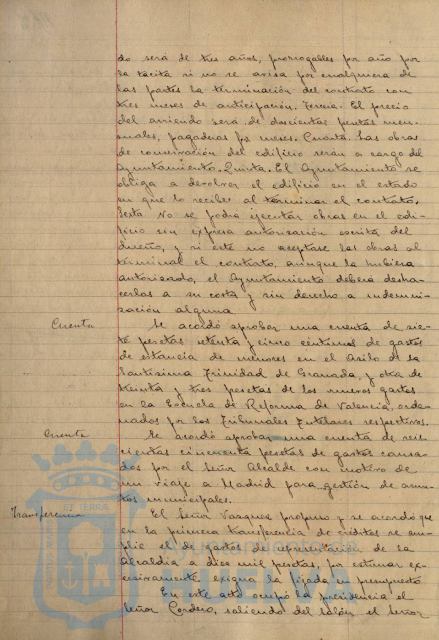 do será de tres años, prorrogables por año por
la tácita si no se avisa por cualquiera de
las partes la terminación del contrato con
tres meses de anticipación. Tercera. El precio
del arriendo será de doscientas pesetas men-
suales, pagaderas por meses. Cuarta. Las obras
de conservación del edificio serán a cargo del
Ayuntamiento. Quinta. El Ayuntamiento se
obliga a devolver el edificio en el estado
en que lo recibe al terminar el contrato.
Sexta No se podrá ejecutar obras en el edi-
ficio sin expresa autorización escrita del
dueño, y si este no aceptase las obras al
terminar el contrato, aunque la hubiera
autorizado, el Ayuntamiento deberá desha-
cerlas a su costa y sin derecho a indemni-
zación alguna
Cuenta
Se acordó aprobar una cuenta de sie-
te pesetas setenta y cinco céntimos de gastos
de estancia de menores en el Asilo de la
Santísima Trinidad de Granada, y otra de
treinta y tres pesetas de los mismos gastos
en la Escuela de Reforma de Valencia, orde-
nados por los Tribunales Tutelares respectivos.
Cuenta
Se acordó aprobar una cuenta de seis-
cientas cincuenta pesetas de gastos causa-
dos por el Señor Alcalde con motivo de
un viaje a Madrid para gestión de asun-
tos municipales.
Transferencia
El Señor Vazquez propuso y se acordó que
en la primera transferencia de créditos se am-
plie el de gastos de representación de la
Alcaldía a diez mil pesetas, por estimar ex-
cesivamente exigua la fijada en presupuesto
En este acto ocupó la presidencia el
Señor Cordero, saliendo del salón el Señor